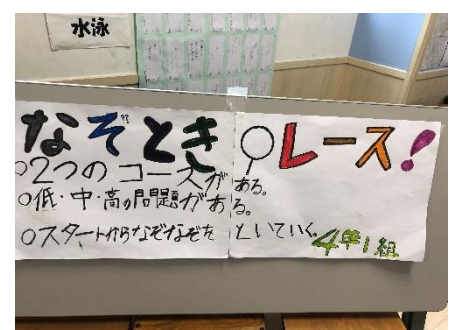 水泳
なぞとき レース!
○2つの コースが ある。
○低・中・高の問題がある。
○スタートからなぞなぞを といていく。
4年1組